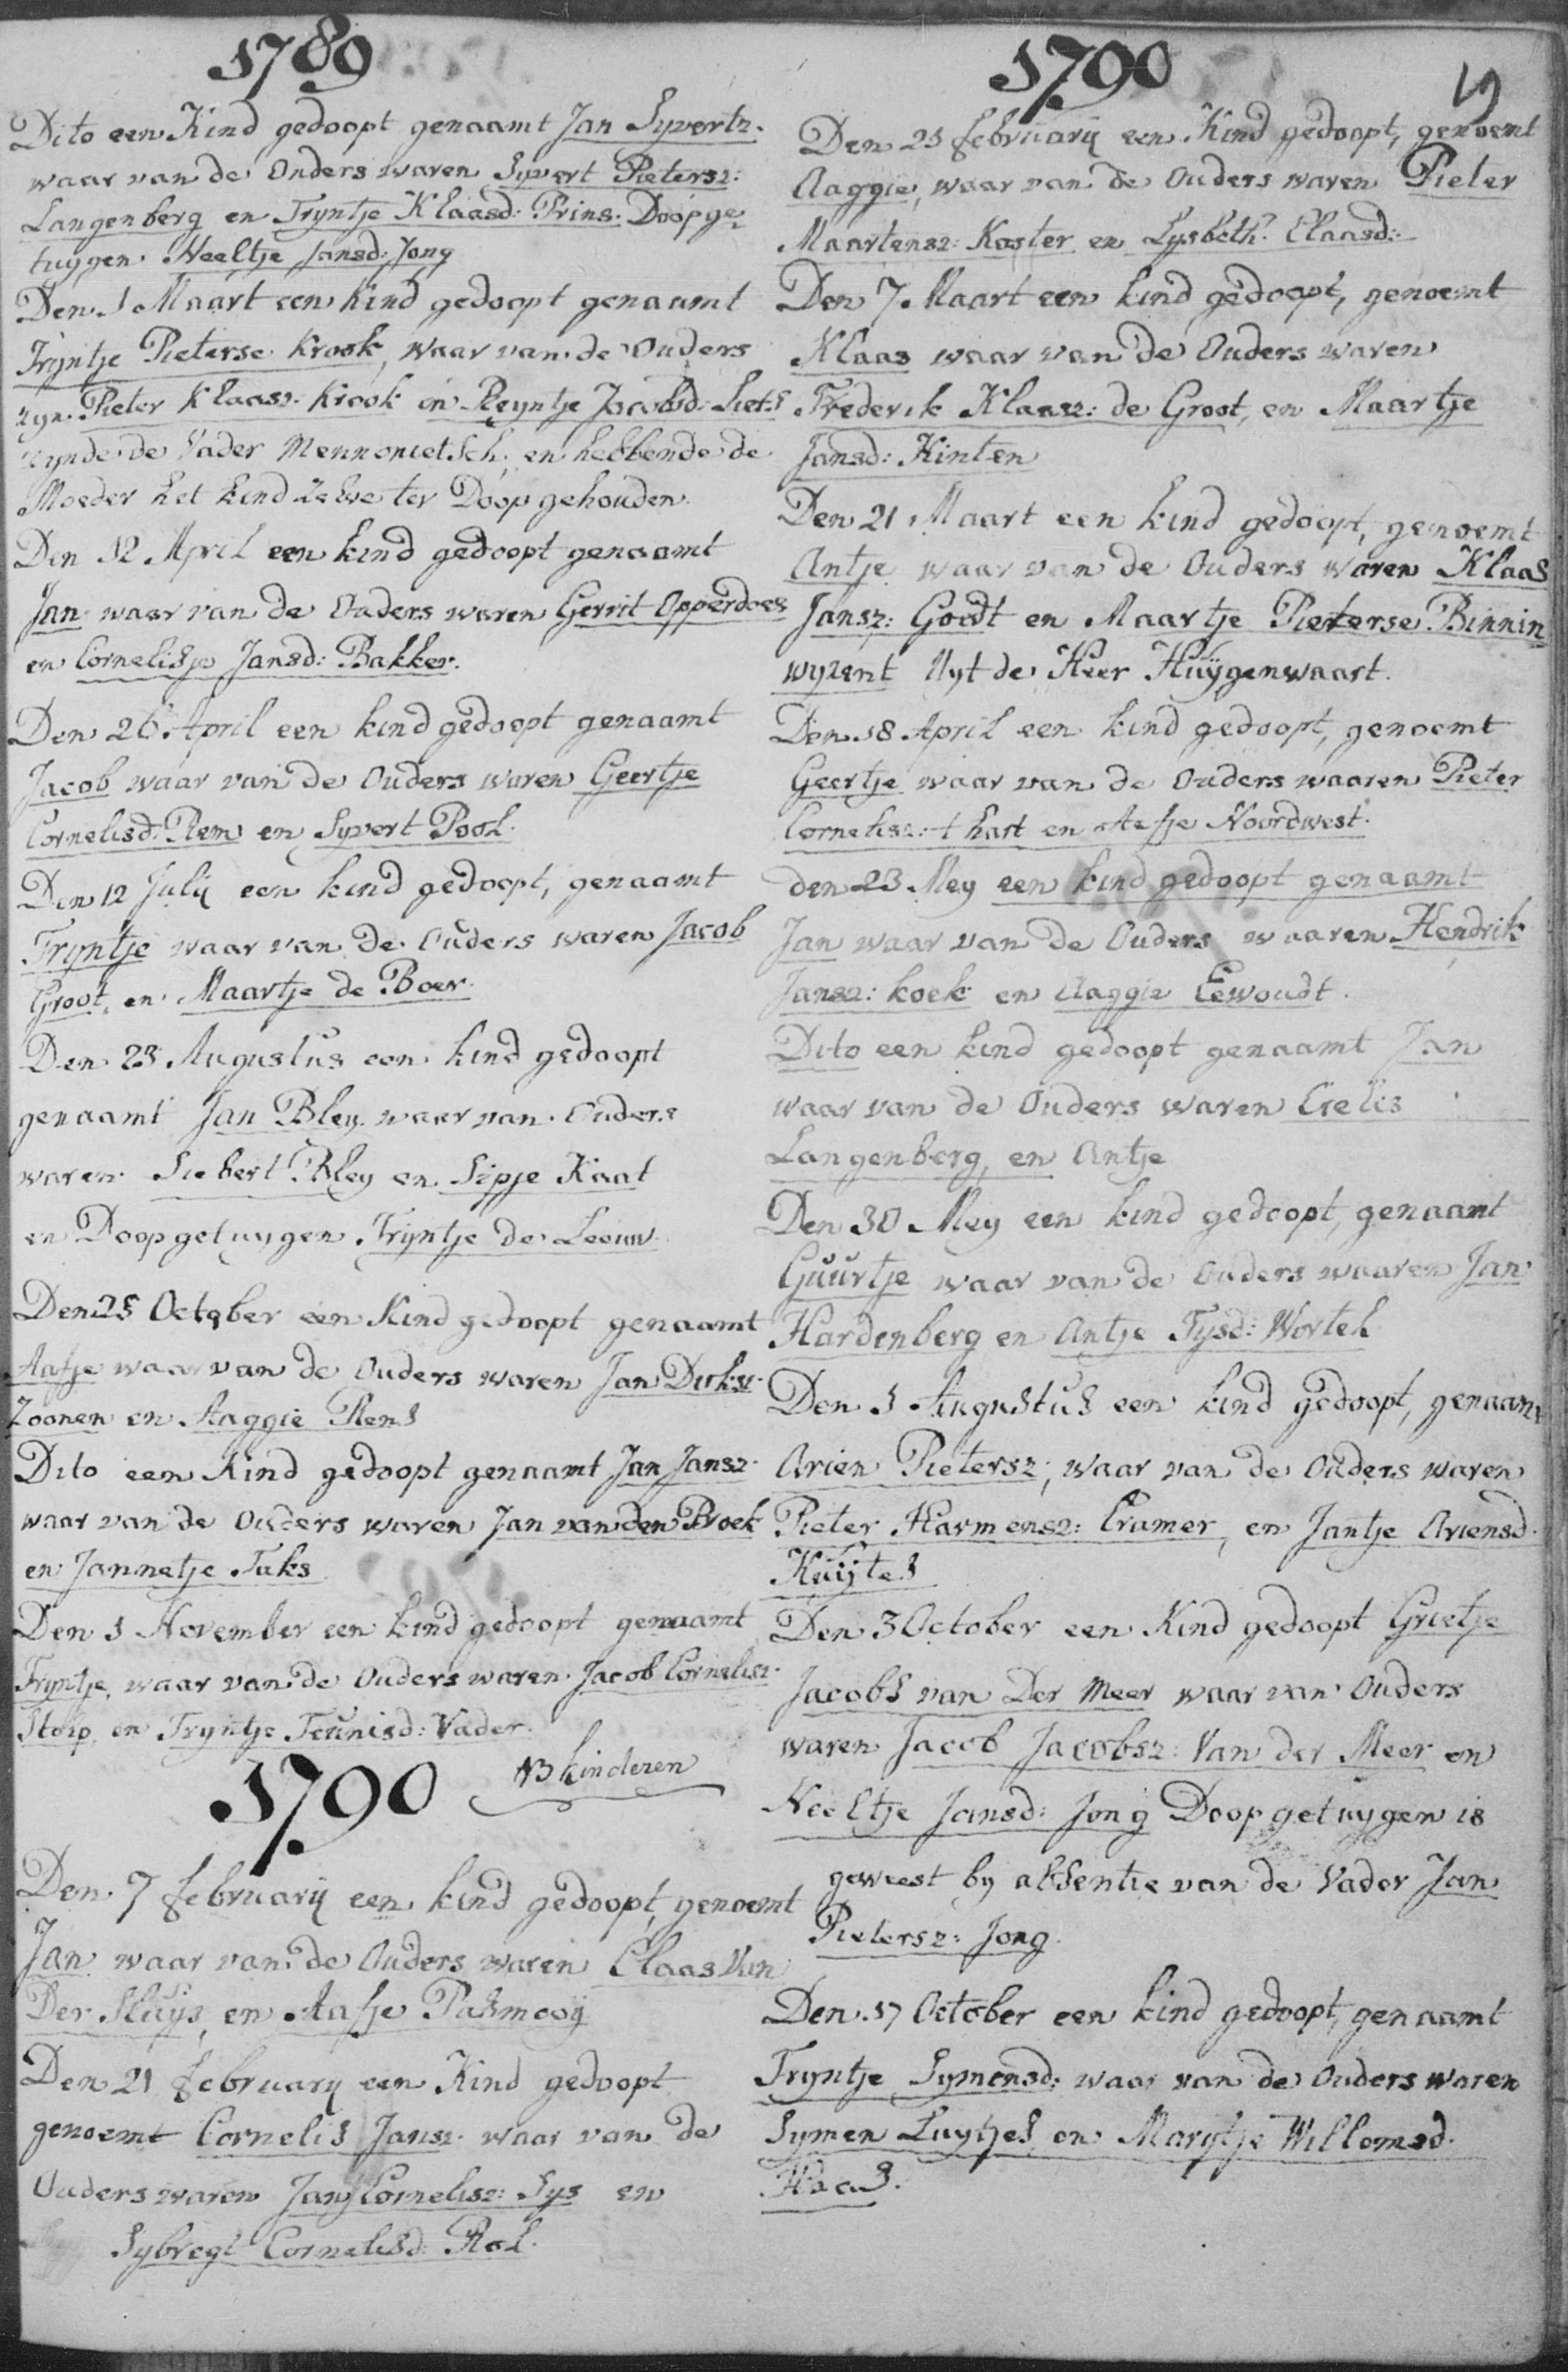 1789
Dito een Kind gedoopt genaamt Jan Syvertz.
waar van de Ouders waren Syvert Pietersz:
Langenberg en Tryntje Klaasd: Prins. Doopge
tuygen Neeltje Jansd: Jong
Den 1 Maart een Kind gedoopt genaamt
Tryntje Pieterse Krook, waar van de Ouders
zyn. Pieter Klaasz. Krook en Reyntje Jacobd:
zynde de Vader Mennonietsch, en hebbende de
Moeder het kind zelve ter Doop gehouden.
Den 12 April een kind gedoopt genaamt
Jan waar van de Ouders waren Gerrit Opperdoes
en Cornelisje Jansd: Bakker.
Den 26 April een kind gedoopt genaamt
Jacob waar van de Ouders waren Geertje
Cornelisd: Rem en Syvert Pool.
Den 12 July een kind gedoopt, genaamt
Tryntje waar van de Ouders waren Jacob
Groot, en Maartje de Boer.
Den 23 Augustus een kind gedoopt
genaamt Jan Bley waar van Ouders
waren Siebert Bley en Sipje Kaat
en Doopgetuygen Tryntje de Leeuw
Den 25 October een Kind gedoopt genaamt
Aafje waar van de Ouders waren Jan Dirksz.
Zoonen en Aaggie Rens
Dito een Kind gedoopt genaamt Jan Jansz.
waar van de Ouders waren Jan van den Broek
en Jannetje Taks
Den 1 November een kind gedoopt genaamt
Tryntje, waar van de Ouders waren Jacob Cornelisz.
Stolp en Tryntje Teunisd: Vader.
13 kinderen
1790
Den 7 february een kind gedoopt, genoemt
Jan waar van de Ouders waren Claas Van
Der Sluys, en Aafje Palmooy
Den 21 february een Kind gedoopt
genoemt Cornelis Jansz. waar van de
Ouders waren Jan Cornelisz: Sys en
Sybregt Cornelisd: Rol.
1790
19
Den 25 february een Kind gedoopt, genoemt
Aaggie, waar van de Ouders waren Pieter
Maartensz: Koster en Lysbeth Claasd:
Den 7 Maart een kind gedoopt, genoemt
Klaas waar van de Ouders waren
Frederik Klaasz: de Groot, en Maartje
Jansd: Kinten
Den 21 Maart een kind gedoopt, genoemt
Antje waar van de Ouders waren Klaas
Jansz: Goedt en Maartje Pieterse Binnin
wyzent Uyt de Heer Huygenwaart.
Den 18 April een kind gedoopt, genoemt
Geertje waar van de Ouders waaren Pieter
Cornelisz: t hart en Aefje Noordwest.
den 23 Mey een kind gedoopt genaamt
Jan waar van de Ouders waaren Hendrik
Jansz: koek en Aaggie Eewoudt.
Dito een kind gedoopt genaamt Jan
waar van de Ouders waren Cielis
Langenberg, en Antje
Den 30 Mey een kind gedoopt, genaamt
Guurtje waar van de Ouders waaren Jan
Hardenberg en Antje Tysd: Wortel
Den 1 Augustus een kind gedoopt, genaamt
Arien Pietersz; waar van de Ouders waren
Pieter Harmensz: Cramer, en Jantje Ariensd.
Kuytes
Den 3 October een Kind gedoopt Grietje
Jacobs van Der Meer waar van Ouders
waren Jacob Jacobsz: Van der Meer en
Neeltje Jansd: Jong Doopgetuygen is
geweest by absentie van de Vader Jan
Pietersz: Jong.
Den 17 October een kind gedoopt, genaamt
Tryntje Symensd: waar van de Ouders waren
Symen Luytjes en Marytje Willemsd.
Haas.